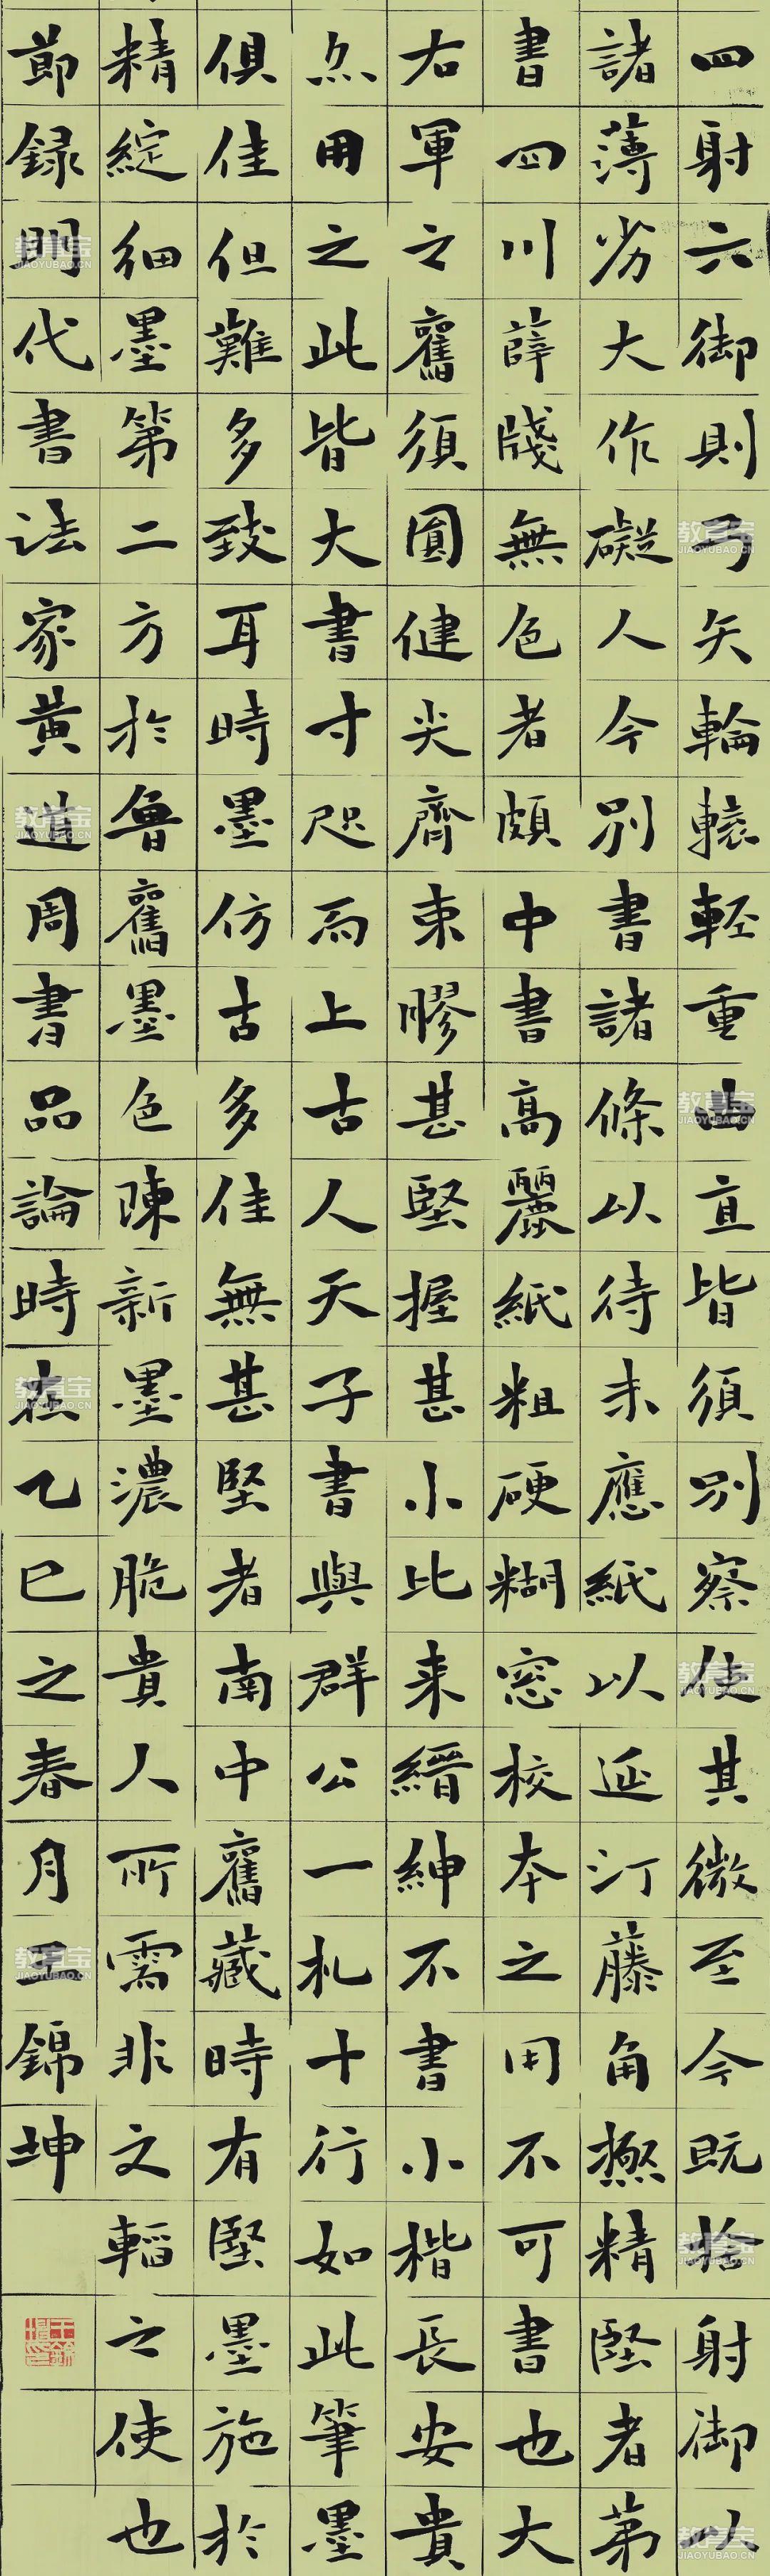 四射六御則弓矢輪轅輕重曲直皆須別察使其微至今既捨射御以
諸薄劣大作礙人今別書諸條以待未應紙以延汀藤角極精堅者第
書四川薛牋無色者頗中書高麗紙粗硬糊窓校本之用不可書也大
右軍之舊須圓健尖齊束膠甚堅握甚小比来縉紳不書小楷長安貴
用之此皆大書寸咫而上古人天子書與群公一札十行如此筆墨
俱佳但難多致耳時墨仿古多佳無甚堅者南中舊藏時有堅墨施於
精綻細墨第二方於魯舊墨色陳新墨濃脆貴人所需非文之使也
節録明代書法家黃道周書品論時在乙巳之春月王錦坤
王錦坤印